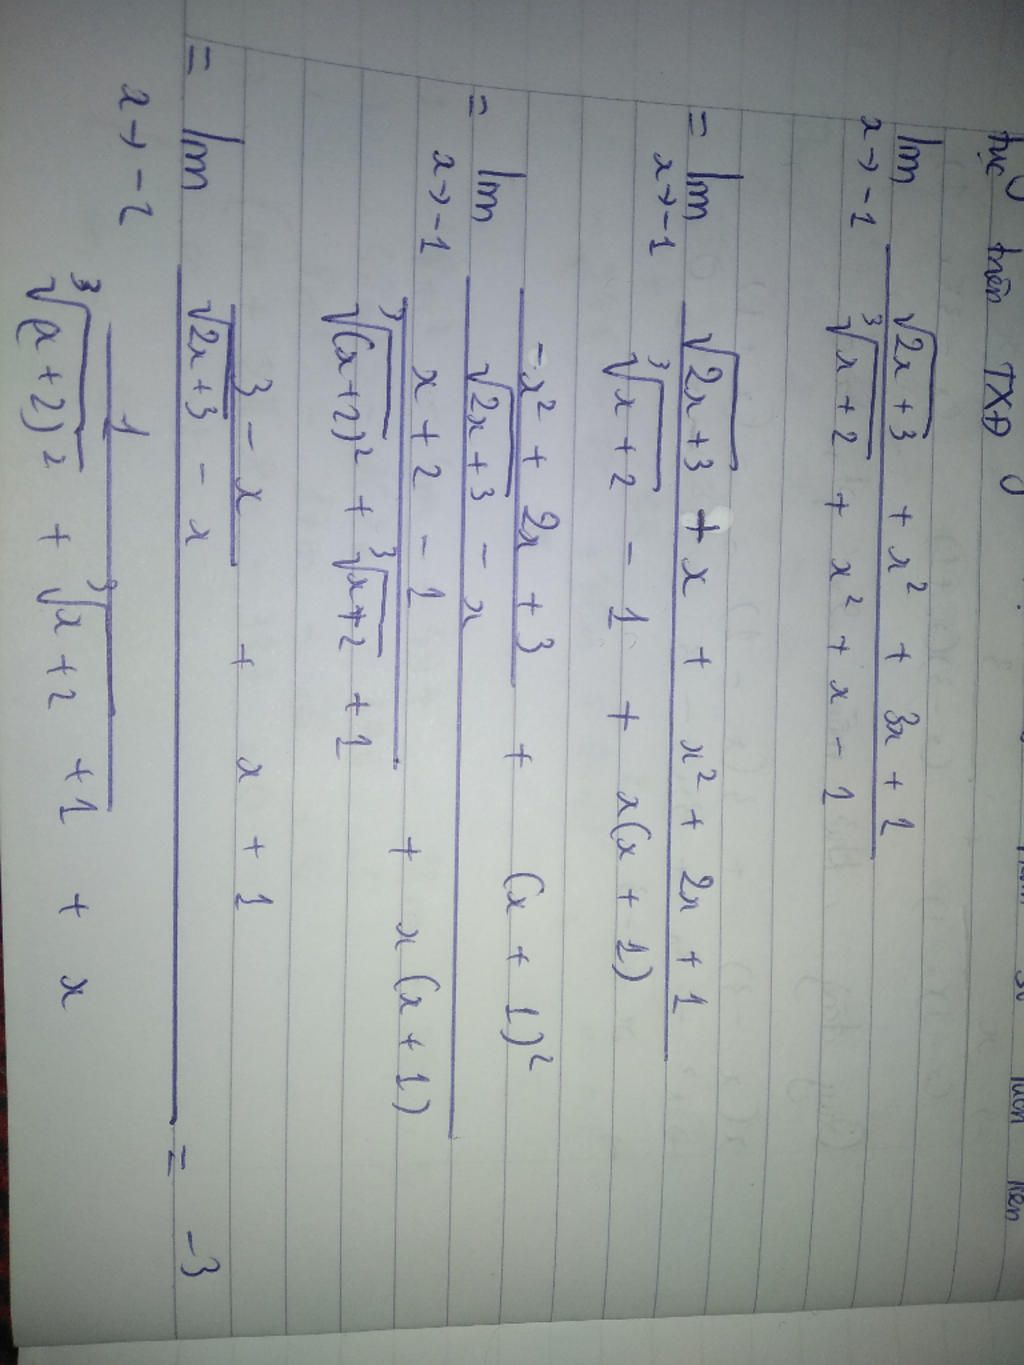 tục trên TXĐ
lim x→-1 (√(2x+3) + x² + 3x + 1) / (³√(x+2) + x² + x - 1)
= lim x→-1 (√(2x+3) + x + x² + 2x + 1) / (³√(x+2) - 1 + x(x+1))
= lim x→-1 ((-x² + 2x + 3) / (√(2x+3) - x) + (x+1)²) / ((x+2-1) / (³√(x+2)² + ³√(x+2) + 1) + x(x+1))
= lim x→-1 ((3-x) / (√(2x+3) - x) + x + 1) / (1 / (³√(x+2)² + ³√(x+2) + 1) + x) = -3